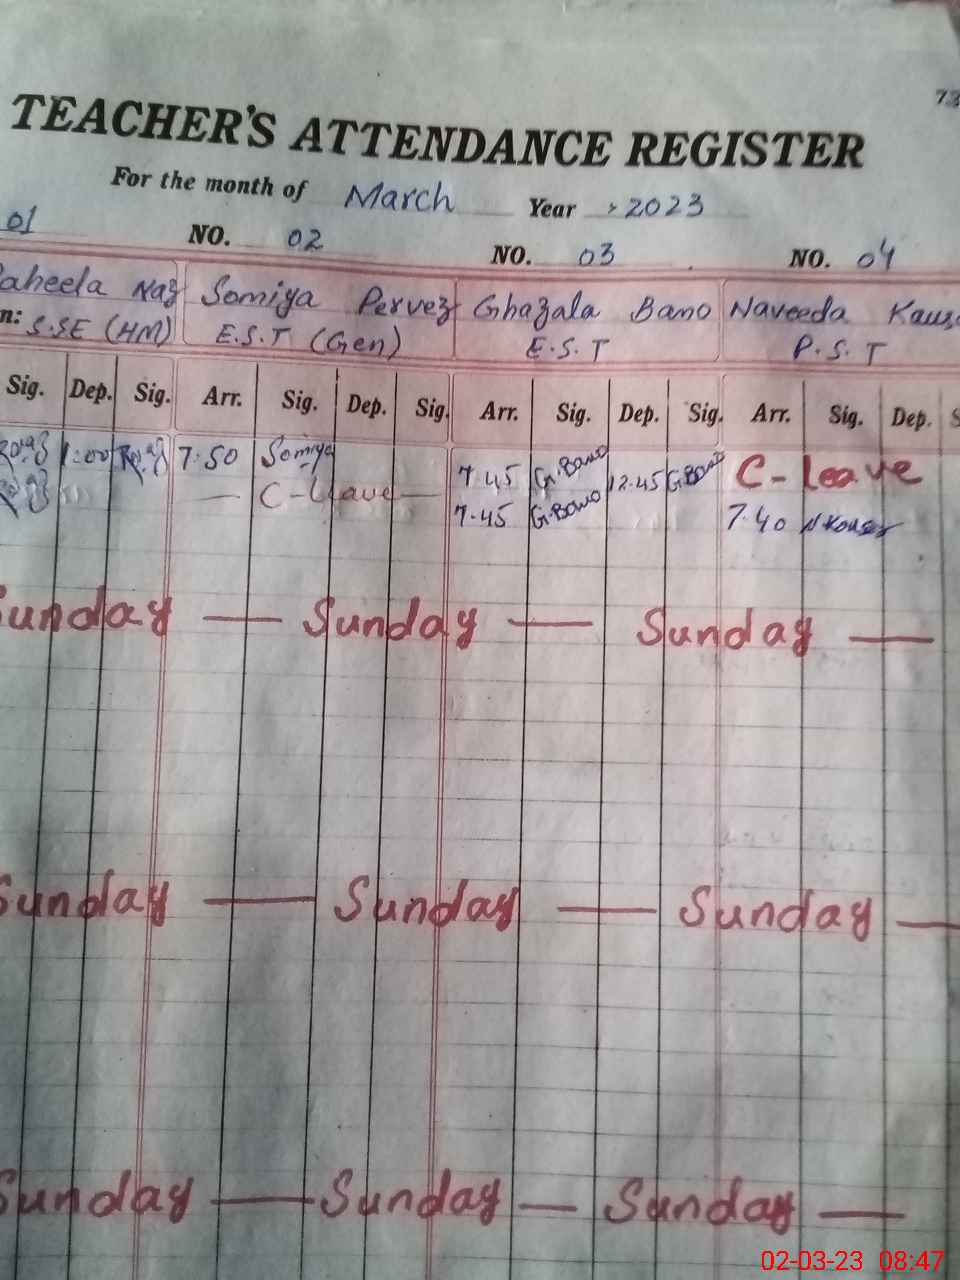 73
TEACHER'S ATTENDANCE REGISTER
For the month of March Year 2023
01 NO. 02 NO. 03 NO. 04
aheela Naz Somiya Pervez Ghazala Bano Naveeda Kaus
n: S.SE (HM) E.S.T (Gen) E.S.T P.S.T
Sig. Dep. Sig. Arr. Sig. Dep. Sig. Arr. Sig. Dep. Sig. Arr. Sig. Dep. S
1:00 7:50 Somiya 7.45 G.Bano 12.45 G.Bano C-Leave
— C-Leave — 7.45 G.Bano 7.40 N Kouser
Sunday — Sunday — Sunday —
Sunday — Sunday — Sunday —
Sunday — Sunday — Sunday —
02-03-23 08:47